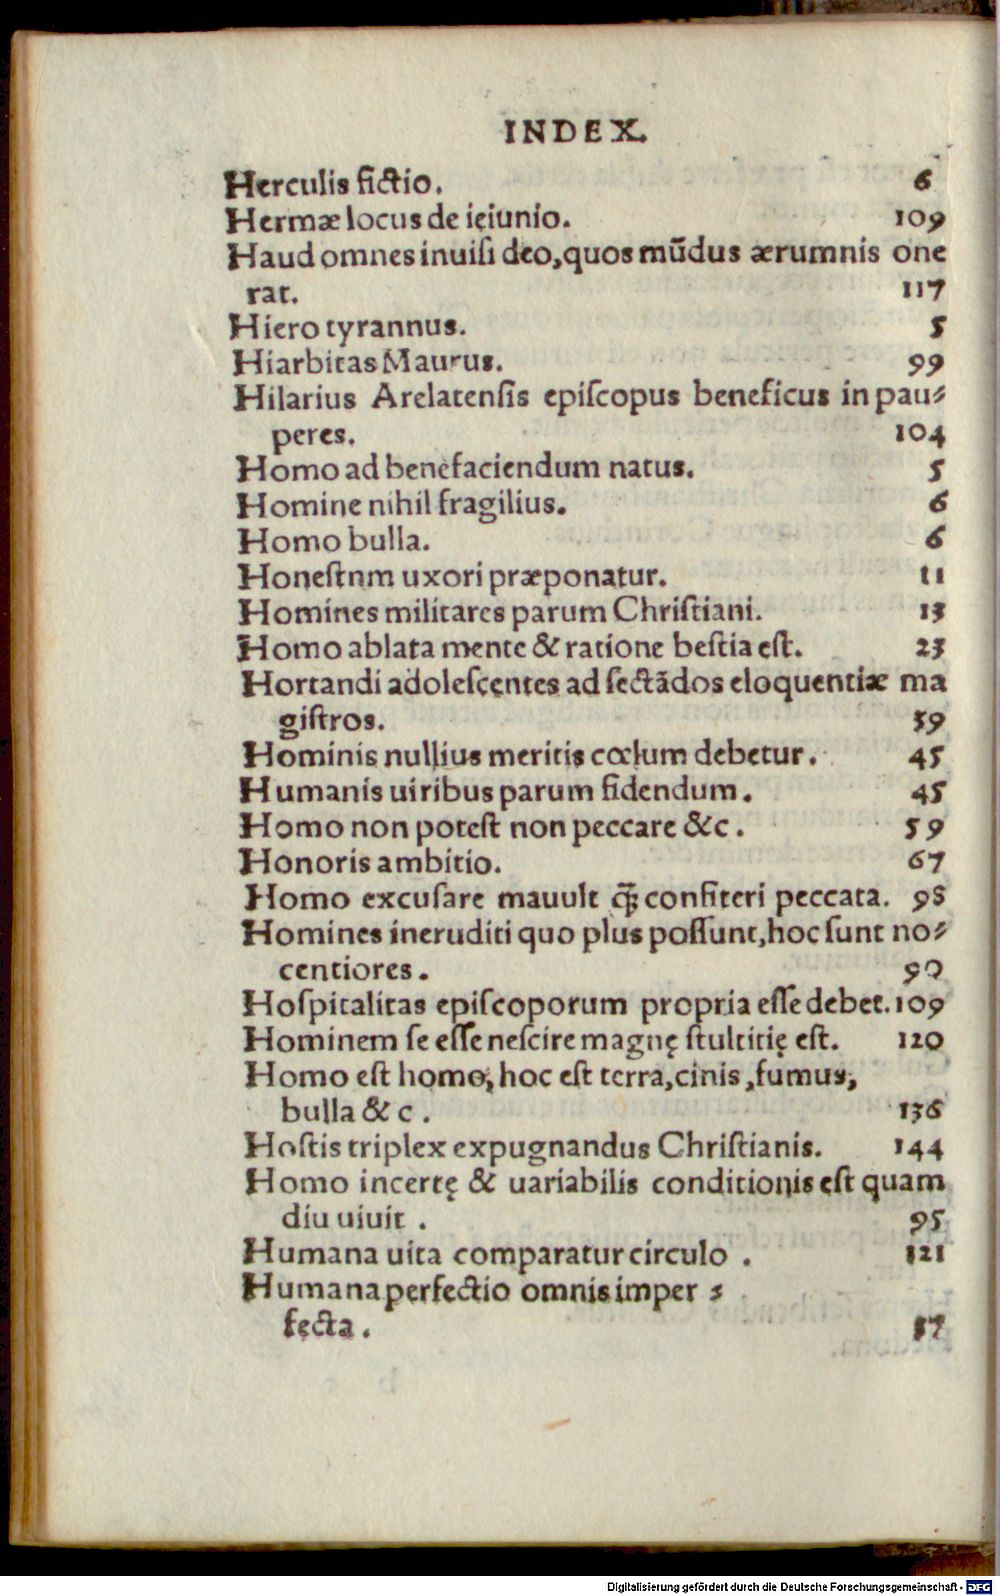 INDEX.
Herculis fictio. 6
Hermæ locus de ieiunio. 109
Haud omnes inuiſi deo, quos mũdus ærumnis one
rat. 117
Hiero tyrannus. 5
Hiarbitas Maurus. 99
Hilarius Arelatenſis epiſcopus beneficus in pau⸗
peres. 104
Homo ad benefaciendum natus. 5
Homine nihil fragilius. 6
Homo bulla. 6
Honeſtnm uxori præponatur. 11
Homines militares parum Chriſtiani. 13
Homo ablata mente & ratione beſtia eſt. 23
Hortandi adoleſcentes ad ſectãdos eloquentiæ ma
giſtros. 39
Hominis nullius meritis cœlum debetur. 45
Humanis uiribus parum fidendum. 45
Homo non poteſt non peccare &c. 59
Honoris ambitio. 67
Homo excuſare mauult q̃ȝ confiteri peccata. 98
Homines ineruditi quo plus poſſunt, hoc ſunt no⸗
centiores. 90
Hoſpitalitas epiſcoporum propria eſſe debet. 109
Hominem ſe eſſe neſcire magnę ſtultitię eſt. 120
Homo eſt homo, hoc eſt terra, cinis, fumus,
bulla & c. 136
Hoſtis triplex expugnandus Chriſtianis. 144
Homo incertę & uariabilis conditionis eſt quam
diu uiuit. 95
Humana uita comparatur circulo. 121
Humana perfectio omnis imper⸗
fecta. 37
Digitalisierung gefördert durch die Deutsche Forschungsgemeinschaft - DFG